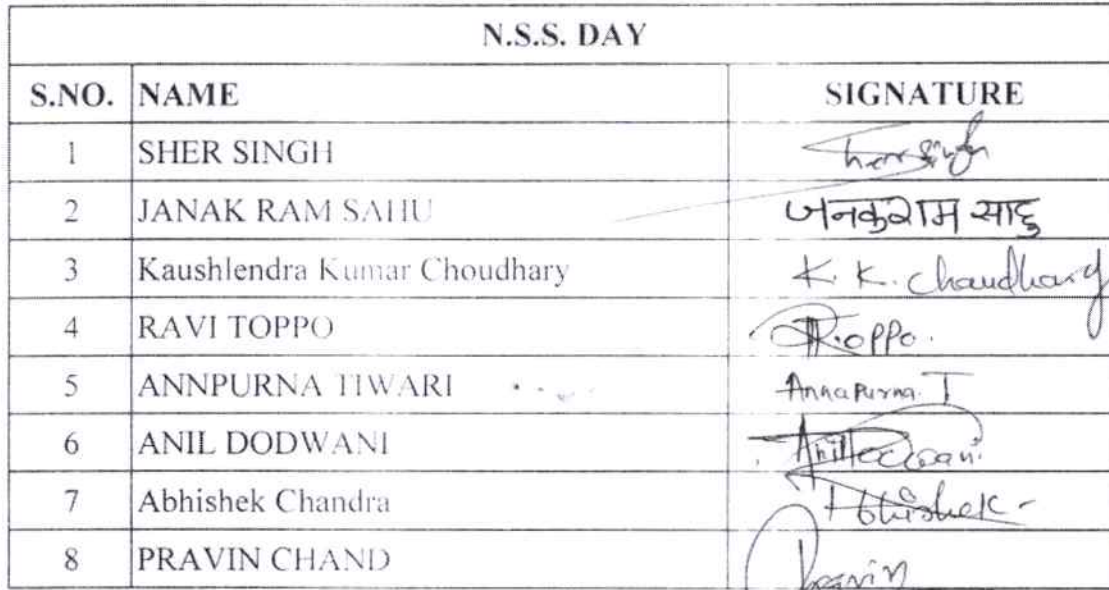 N.S.S. DAY
S.NO. NAME SIGNATURE
1 SHER SINGH Sher Singh
2 JANAK RAM SAHU जनकराम साहु
3 Kaushlendra Kumar Choudhary K. K. Chaudhary
4 RAVI TOPPO R.Toppo.
5 ANNPURNA TIWARI Annapurna. T
6 ANIL DODWANI
7 Abhishek Chandra Abhishek
8 PRAVIN CHAND Pravin